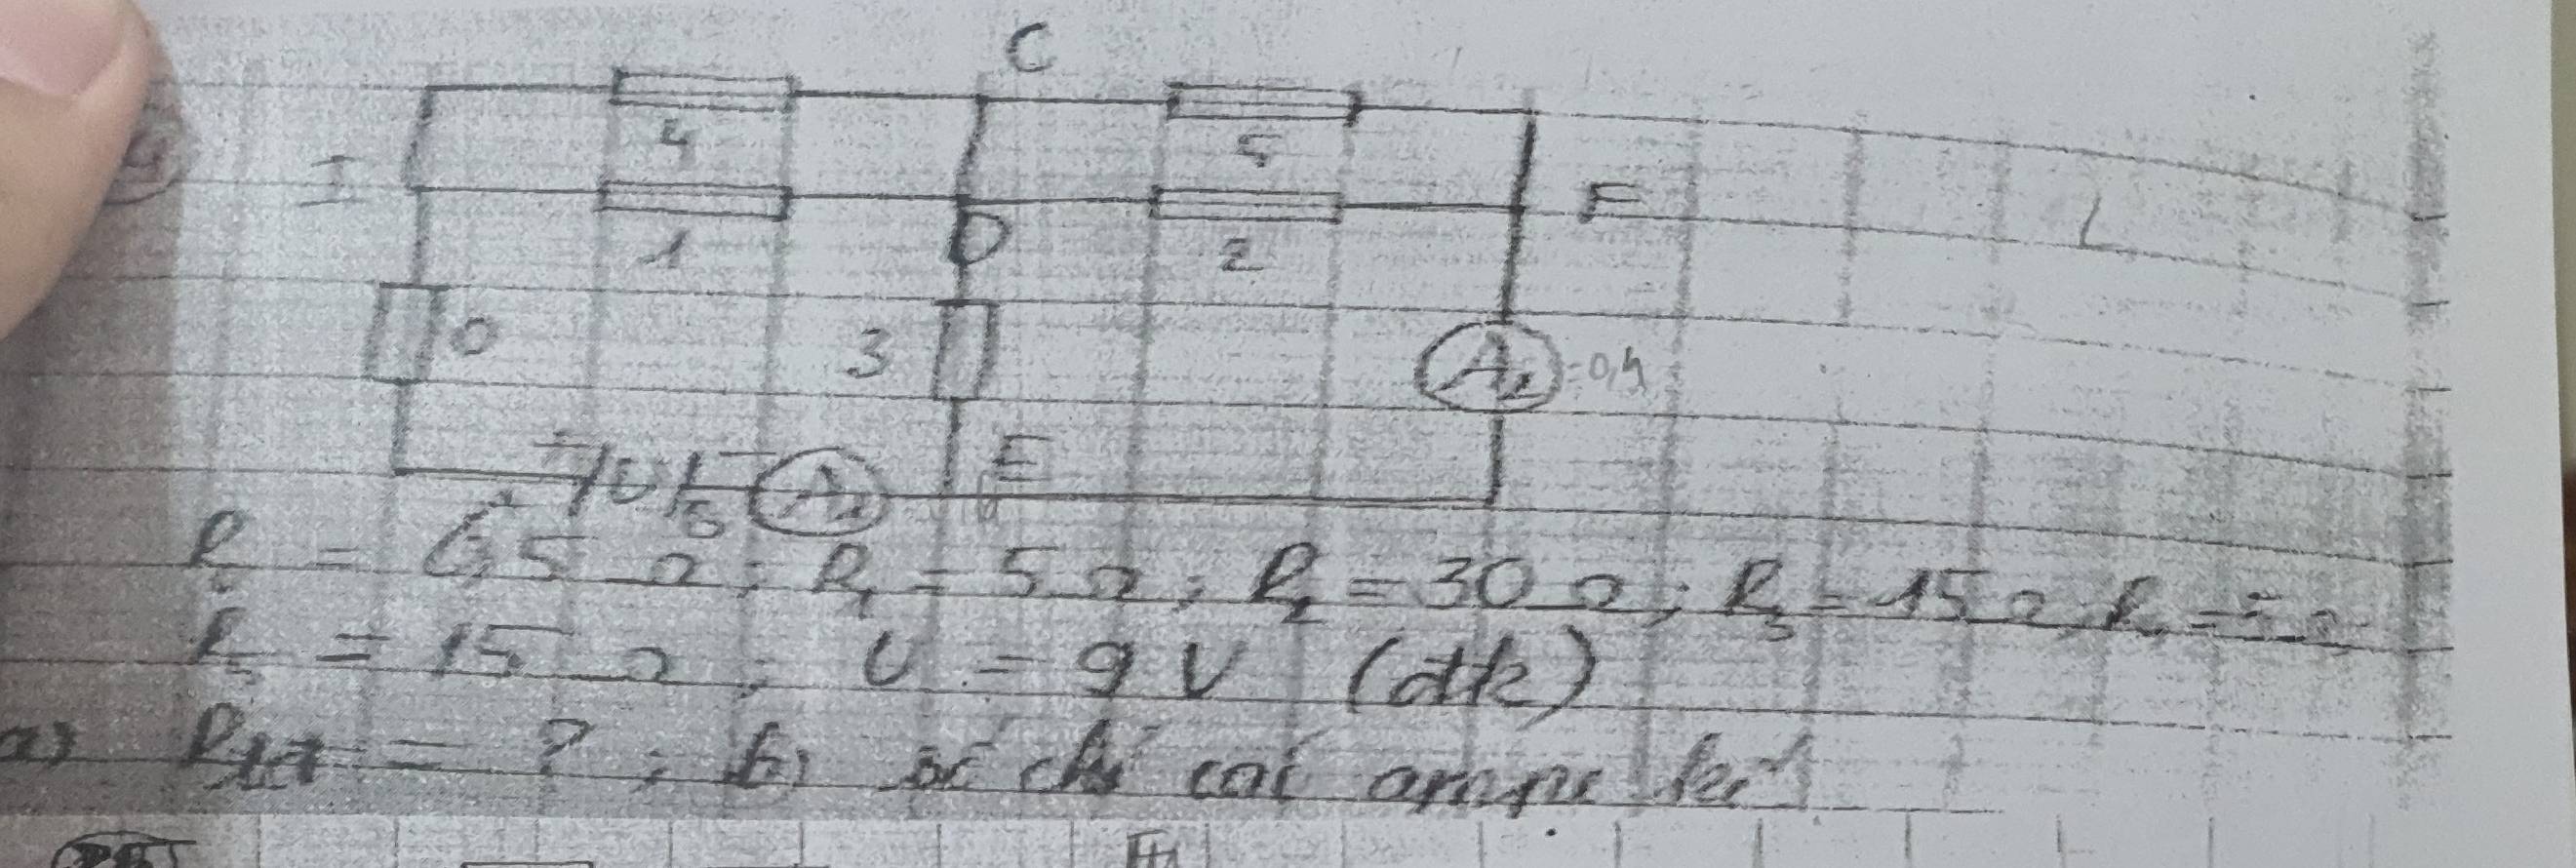 C
4
5
I
F
1
D
2
0
3
A₂ = 0,4
E
U
A₁
R₀ = 6,5 Ω ; R₁ = 5 Ω ; R₂ = 30 Ω ; R₃ = 15 Ω ; R₄ = 5 Ω
R₅ = 15 Ω ; U = 9 V (đtk)
a) Rtđ = ? ; b) số chỉ các ampe kế